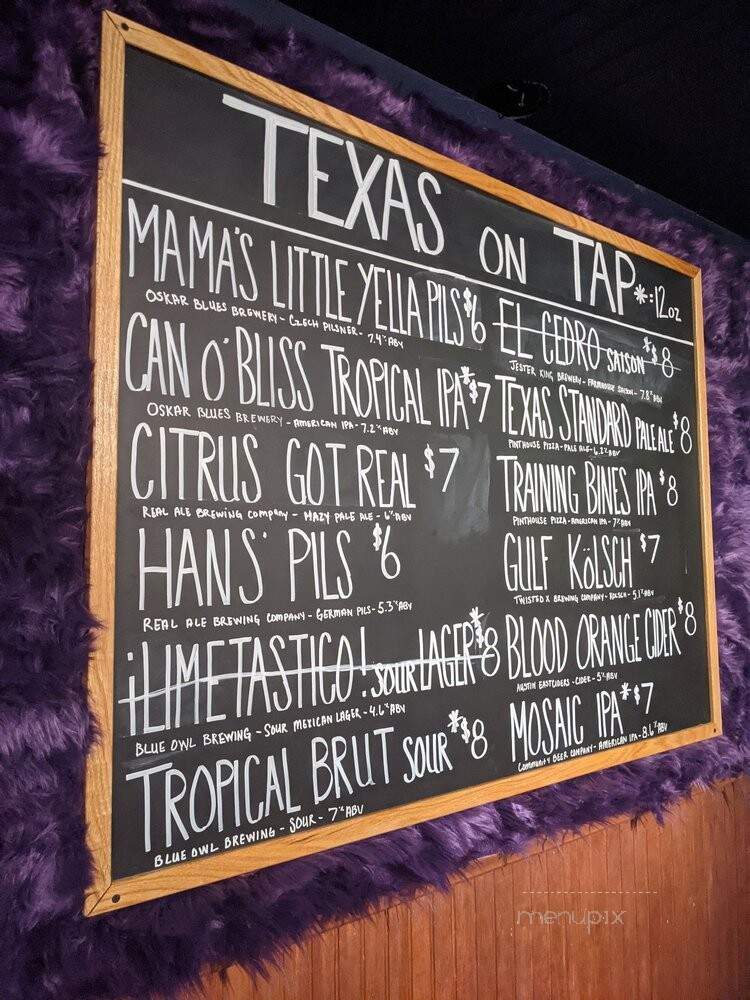 TEXAS ON TAP *=12oz
MAMA'S LITTLE YELLA PILS $6
OSKAR BLUES BREWERY - CZECH PILSNER - 7.4% ABV
CAN O' BLISS TROPICAL IPA *$7
OSKAR BLUES BREWERY - AMERICAN IPA - 7.2% ABV
CITRUS GOT REAL $7
REAL ALE BREWING COMPANY - HAZY PALE ALE - 6% ABV
HANS' PILS $6
REAL ALE BREWING COMPANY - GERMAN PILS - 5.3% ABV
¡LIMETASTICO! SOUR LAGER *$8
BLUE OWL BREWING - SOUR MEXICAN LAGER - 4.6% ABV
TROPICAL BRUT SOUR *$8
BLUE OWL BREWING - SOUR - 7% ABV
EL CEDRO SAISON *$8
JESTER KING BREWERY - FARMHOUSE SAISON - 7.8% ABV
TEXAS STANDARD PALE ALE $8
PINTHOUSE PIZZA - PALE ALE - 6.2% ABV
TRAINING BINES IPA $8
PINTHOUSE PIZZA - AMERICAN IPA - 7% ABV
GULF KÖLSCH $7
TWISTED X BREWING COMPANY - KOLSCH - 5.1% ABV
BLOOD ORANGE CIDER $8
AUSTIN EASTCIDERS - CIDER - 5% ABV
MOSAIC IPA *$7
COMMUNITY BEER COMPANY - AMERICAN IPA - 8.6% ABV
menupix